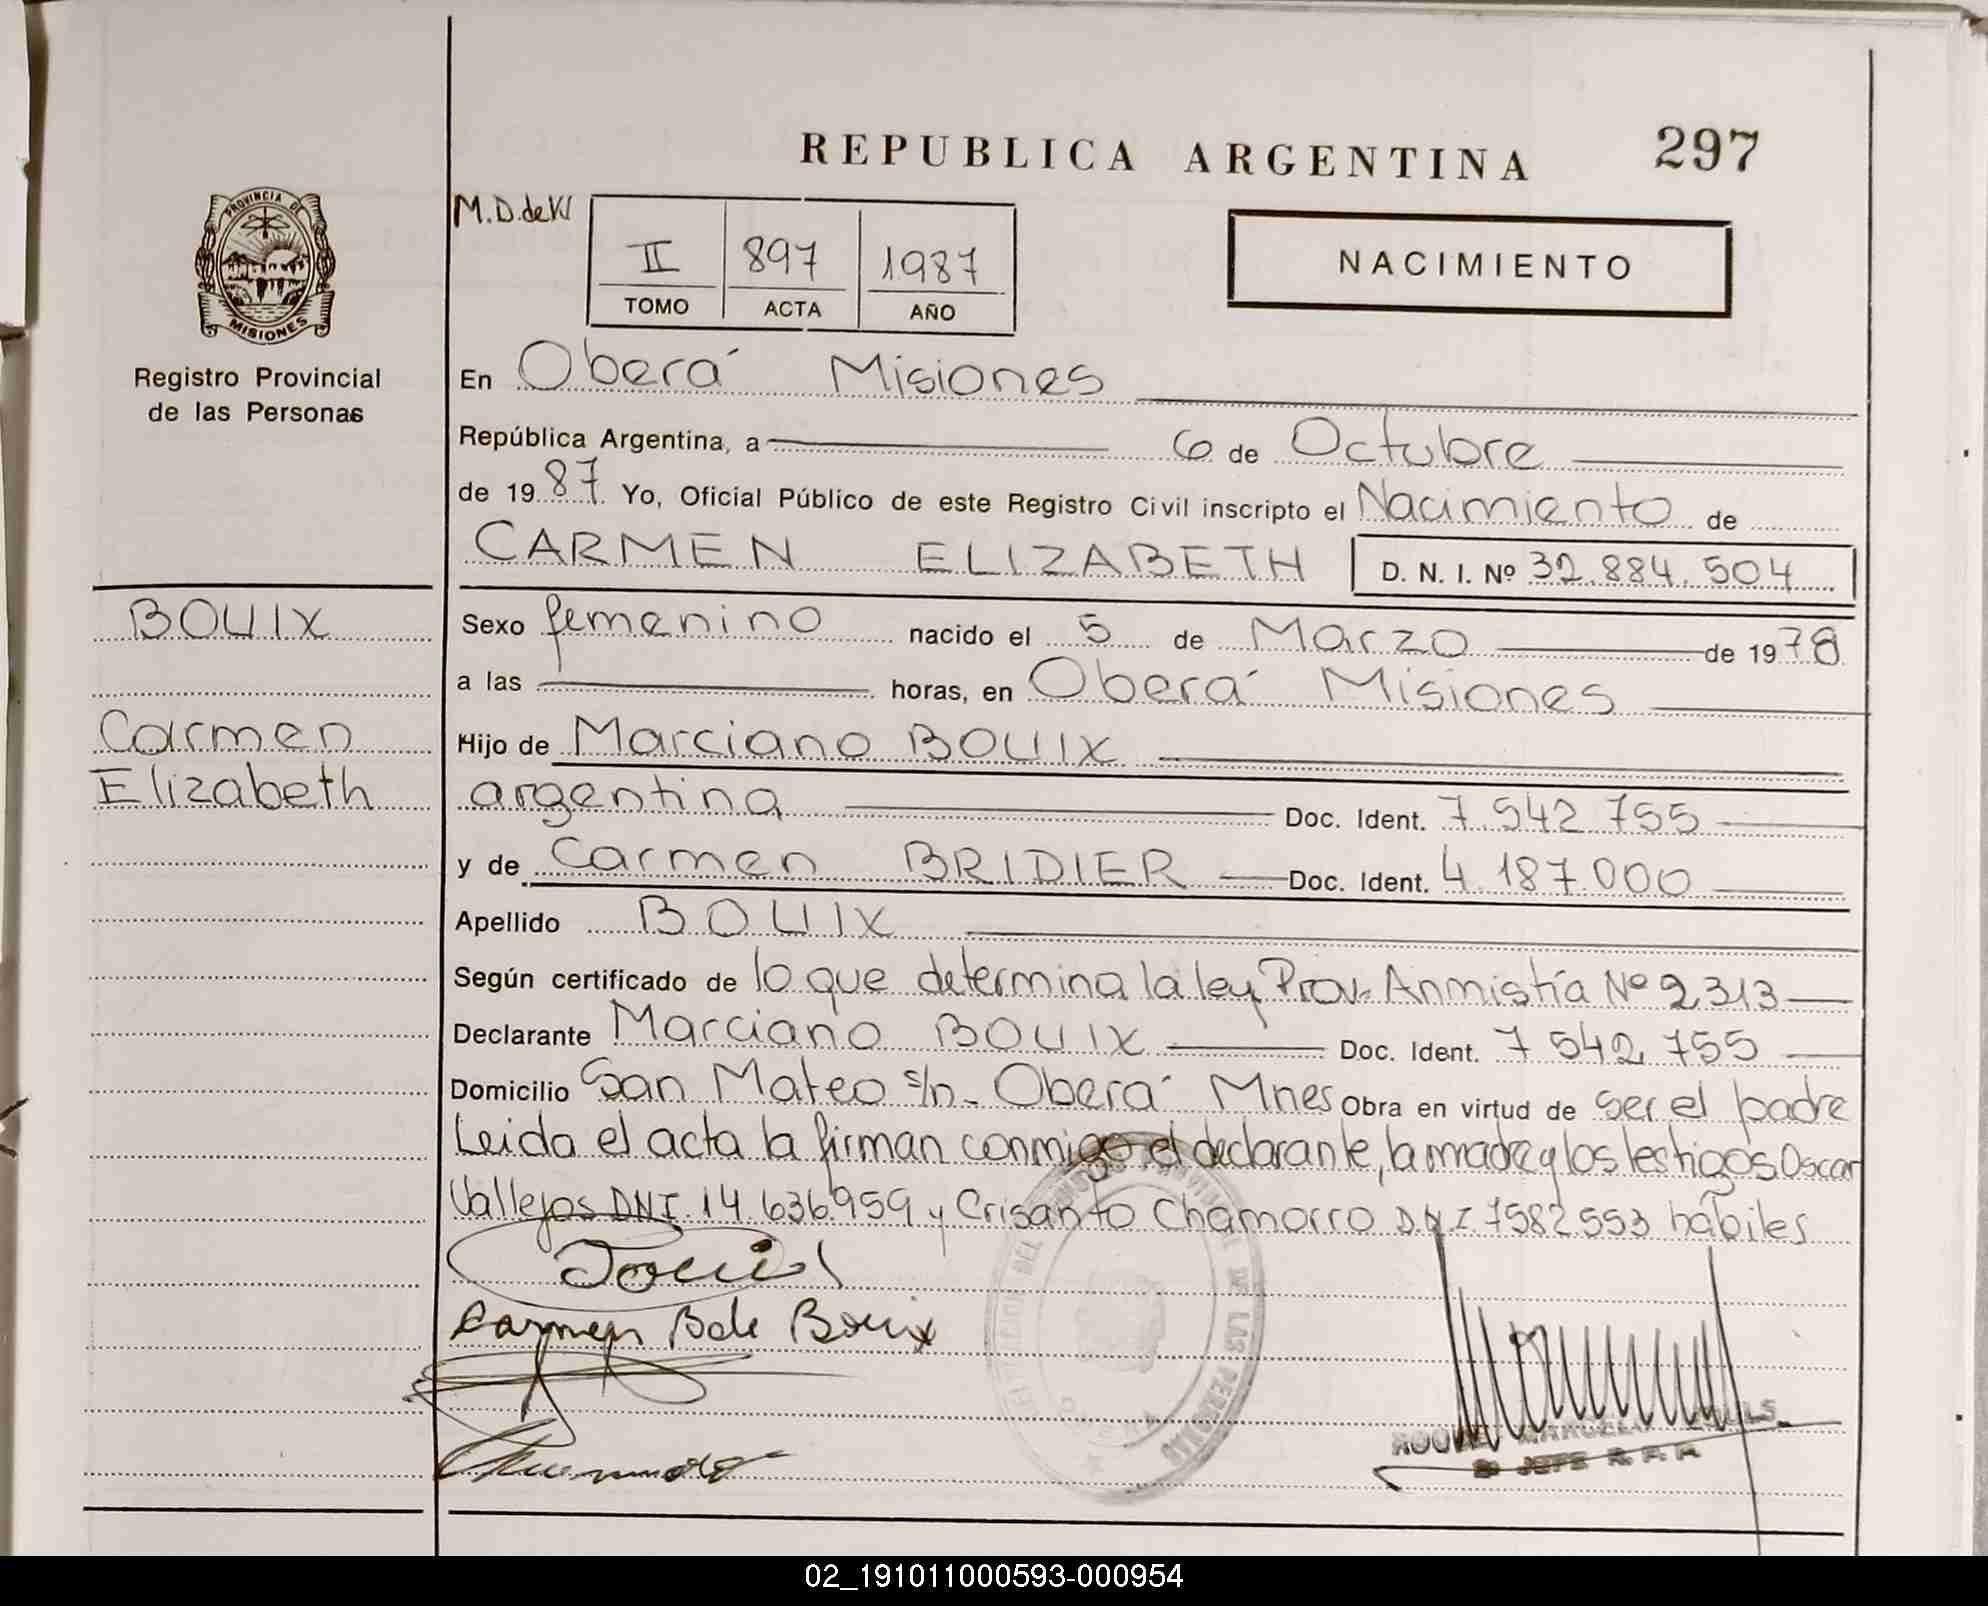 REPUBLICA ARGENTINA 297
PROVINCIA DE
MISIONES
Registro Provincial
de las Personas
M.D.deW
II 897 1987
TOMO ACTA AÑO
NACIMIENTO
En Oberá Misiones
República Argentina, a 6 de Octubre
de 1987. Yo, Oficial Público de este Registro Civil inscripto el Nacimiento de
CARMEN ELIZABETH D. N. I. Nº 32.884.504
BOUIX
Carmen
Elizabeth
Sexo femenino nacido el 5 de Marzo de 1978
a las horas, en Oberá Misiones
Hijo de Marciano BOUIX
argentina Doc. Ident. 7.542.755
y de Carmen BRIDIER Doc. Ident. 4.187.000
Apellido BOUIX
Según certificado de lo que determina la ley Prov. Anmistía Nº 2313
Declarante Marciano BOUIX Doc. Ident. 7 542,755
Domicilio San Mateo s/n- Oberá Mnes Obra en virtud de ser el padre
Leida el acta la firman conmigo el declarante, la madre y los testigos Oscar
Vallejos DNI. 14.636.959 y Crisanto Chamorro D.N.I. 7582.553 hábiles
Carmen B de Bouix
DE LAS PERSONAS
2º JEFE R. P. P.
02_191011000593-000954